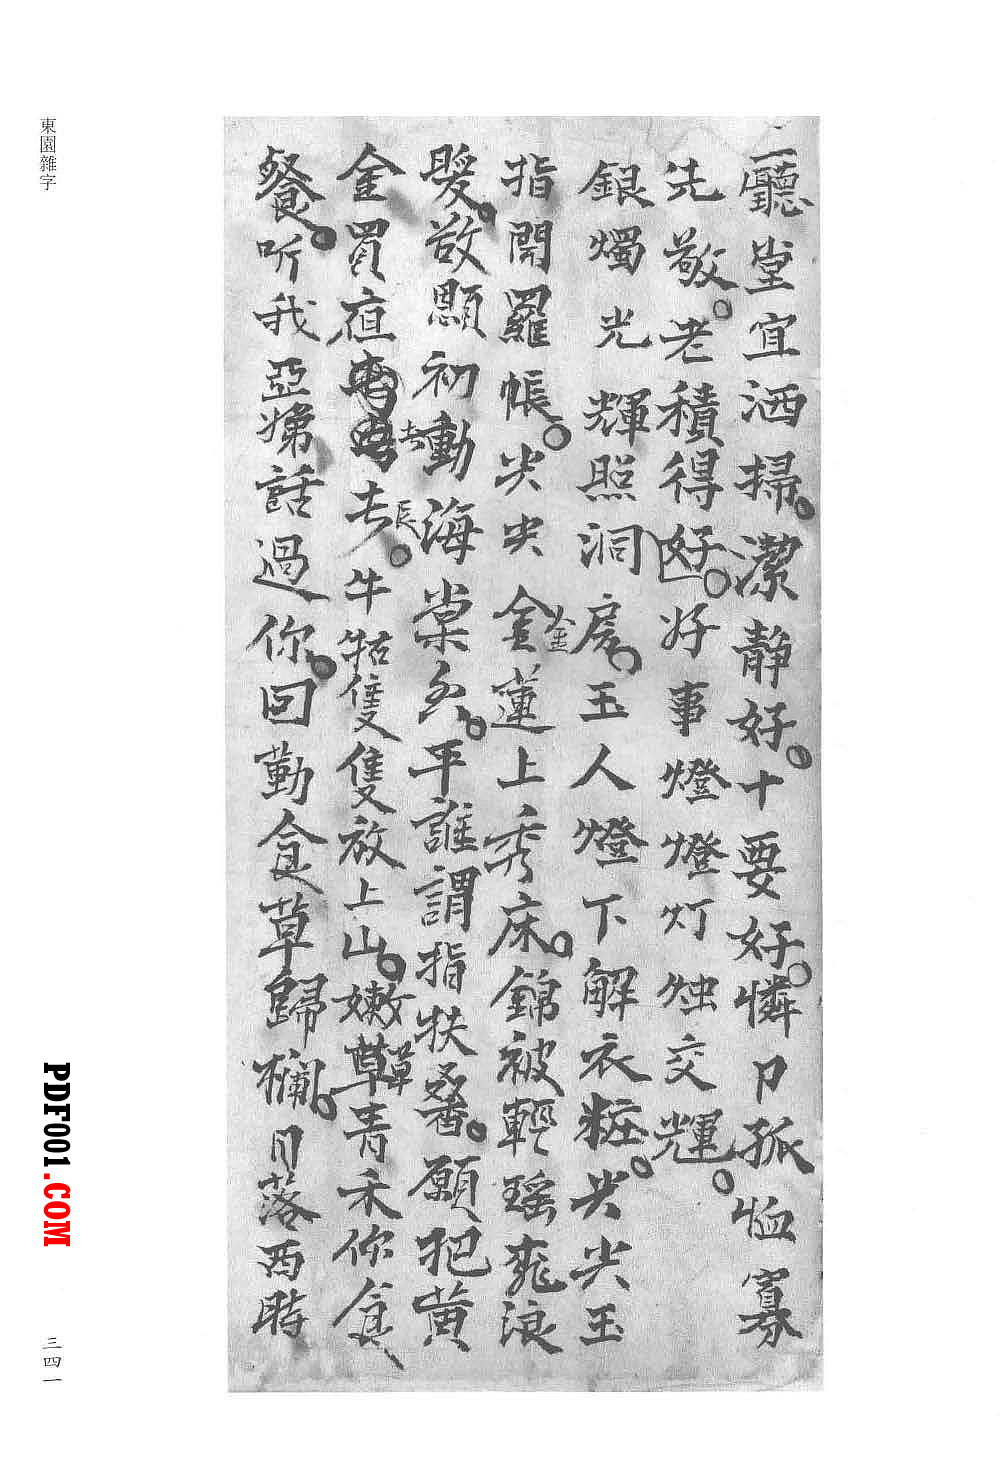 廳堂宜洒掃。潔靜好。十要好。憐卩孤恤寡
先敬。老積得好。好事燈燈灯烛交輝。
銀燭光輝照洞房。玉人燈下解衣粧。尖尖玉
指開羅帳。尖尖金金蓮上秀床。錦被輕瑶飛浪
煖。敨顯初動海棠。平誰謂指扶。願把黃
金買疽去去長。牛牯隻隻放上山。嫩草草青禾你食
餐。听我亞娣話過你。回勤食草歸欄。日落西時
東園雜字
三四一
PDF001.COM